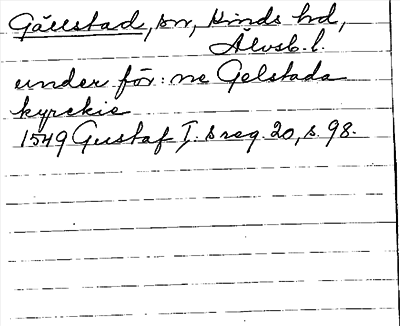 Gällstad, sn, Kinds hd,
Älvsb. l.
under för: ne Gelstada
kyrckie
1549 Gustaf I. s reg. 20, s. 98.